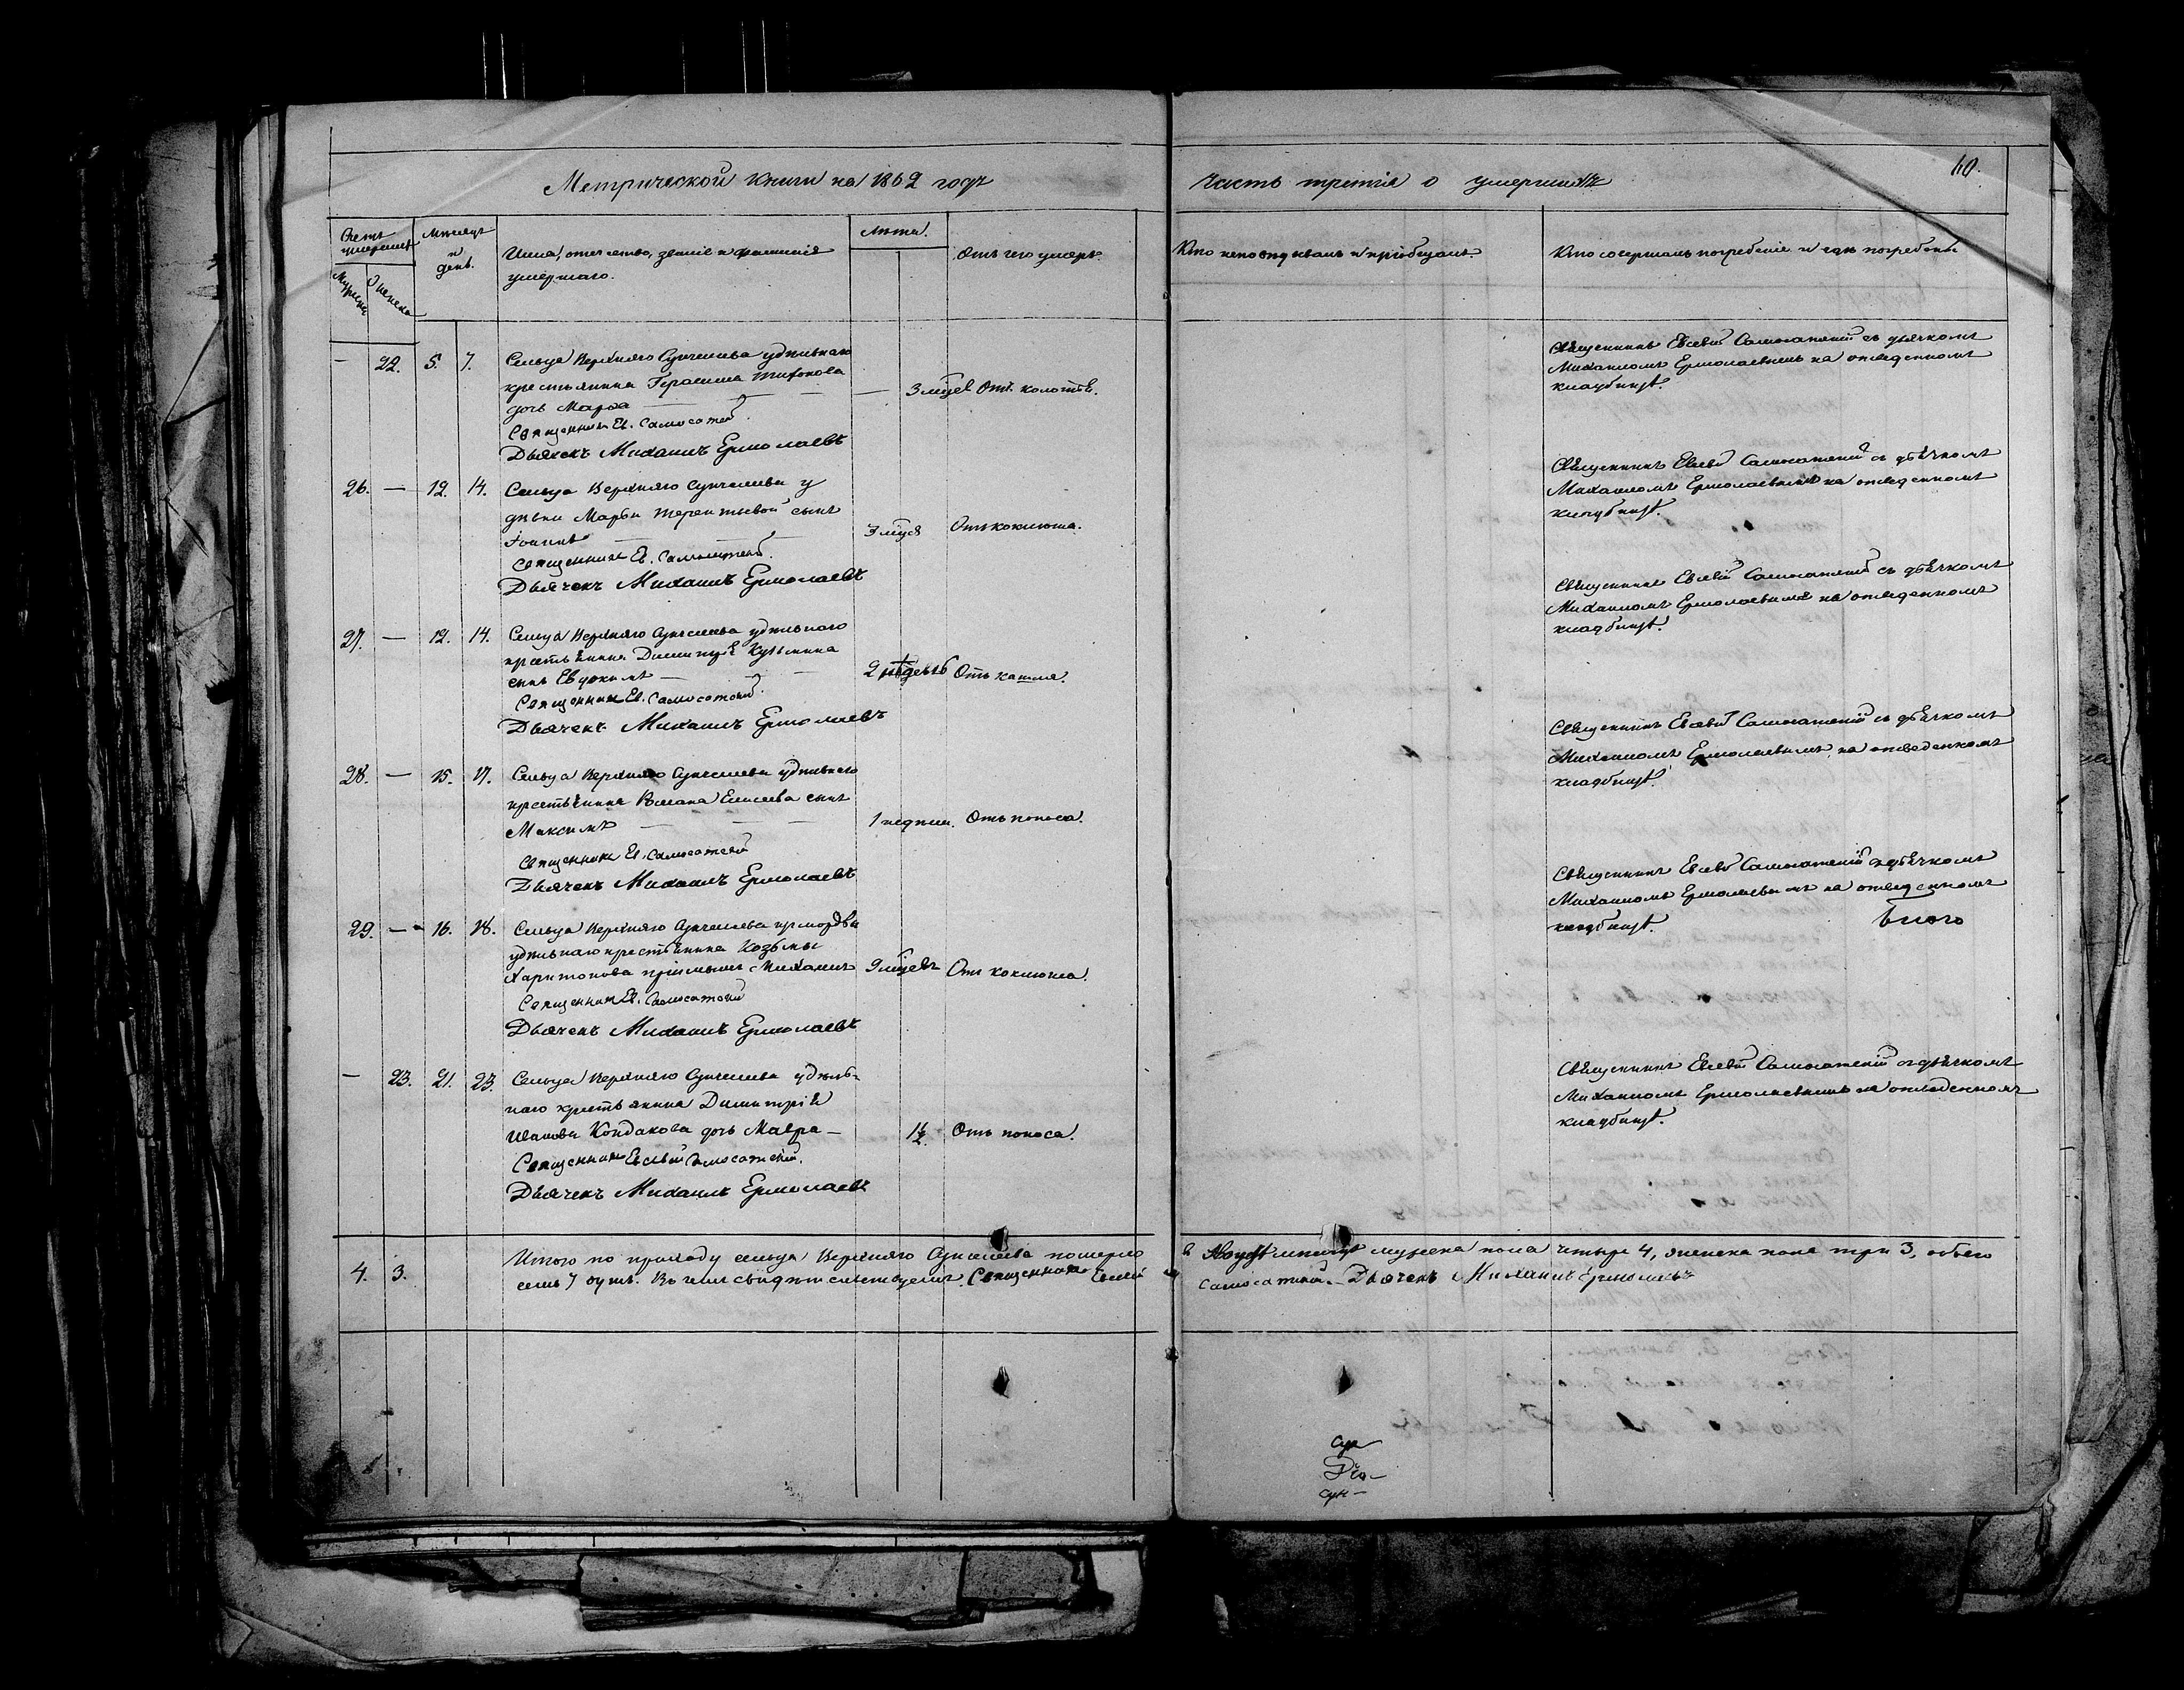 Метрической книги на 1862 годъ
Часть третія о умершихъ
110.
Счетъ умершихъ
Мужеска
Женска
Мѣсяцъ и день.
Имя, отечество, званіе и фамилія
умершаго.
Лѣта.
Отъ чего умеръ.
Кто исповѣдывалъ и пріобщалъ.
Кто совершалъ погребеніе и гдѣ погребены
— 22. 5. 7. Сельца Верхняго удѣльнаго
крестьянина Герасима Тихонова
дочь Марѳа — — 3 мѣцев От.
Священникъ Ев. Самосатскій
Дьячекъ Михаилъ Ермолаевъ
Священникъ Евсевій Самосатскій съ дьячкомъ
Михаиломъ Ермолаевымъ на отведенномъ
кладбищѣ.
26. — 12. 14. Сельца Верхняго у
дѣвки Марѳы Терентьевой сынъ
Іоаннъ — 3 мѣця Отъ коклюша.
Священникъ Ев. Самосатскій
Дьячекъ Михаилъ Ермолаевъ
Священникъ Евсевій Самосатскій съ дьячкомъ
Михаиломъ Ермолаевымъ на отведенномъ
кладбищѣ.
27. — 12. 14. Сельца Верхняго удѣльнаго
крестьянина Димитрія Кузьмина
сынъ Евдокимъ — — 2 Отъ кашля.
Священникъ Ев. Самосатскій
Дьячекъ Михаилъ Ермолаевъ
Священникъ Евсевій Самосатскій съ дьячкомъ
Михаиломъ Ермолаевымъ на отведенномъ
кладбищѣ.
28. — 15. 17. Сельца Верхняго удѣльнаго
крестьянина Романа Елисеева сынъ
Максимъ — — — 1 недѣли. Отъ поноса.
Священникъ Ев. Самосатскій
Дьячекъ Михаилъ Ермолаевъ
Священникъ Евсевій Самосатскій съ дьячкомъ
Михаиломъ Ермолаевымъ на отведенномъ
кладбищѣ.
29. — 16. 18. Сельца Верхняго
удѣльнаго крестьянина Козьмы
Харитонова пріимышъ Михаилъ 9 мѣцевъ Отъ коклюша.
Священникъ Ев. Самосатскій
Дьячекъ Михаилъ Ермолаевъ
Священникъ Евсевій Самосатскій съ дьячкомъ
Михаиломъ Ермолаевымъ на отведенномъ
кладбищѣ.
— 23. 21. 23. Сельца Верхняго удѣль-
наго крестьянина Димитрія
Иванова Кондакова дочь Мавра — 1½ Отъ поноса.
Священникъ Евсевій Самосатскій.
Дьячекъ Михаилъ Ермолаевъ
Священникъ Евсевій Самосатскій съ дьячкомъ
Михаиломъ Ермолаевымъ на отведенномъ
кладбищѣ.
4. 3. Итого по приходу сельца Верхняго померло в Августѣ мѣсяцѣ мужеска пола четыре 4, женска пола три 3, обоего
семь 7 душъ. Въ чемъ свидѣтельствуемъ. Священникъ Евсевій Самосатскій. Дьячекъ Михаилъ Ермолаевъ